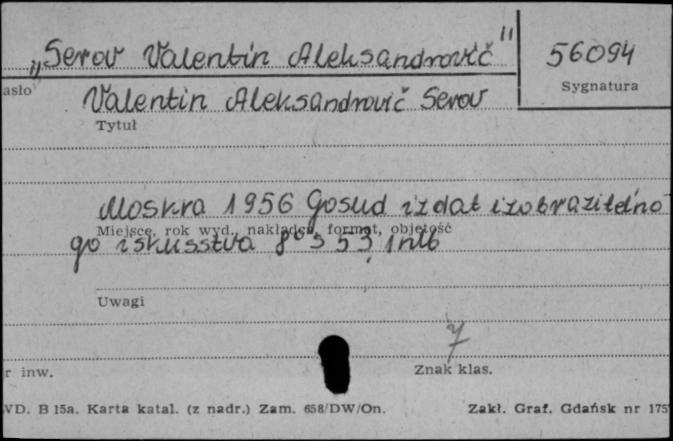 „Serov Valentin Aleksandrovič" 56094
asło Sygnatura
Valentin Aleksandrovič Serov
Tytuł
Moskva 1956 Gosud izdat izobrazitel'no
Miejsce, rok wyd., nakładca, format, objętość
go iskusstva 8° s 53, 1 nlb
Uwagi
7
r inw. Znak klas.
WD. B 15a. Karta katal. (z nadr.) Zam. 658/DW/On. Zakł. Graf. Gdańsk nr 175